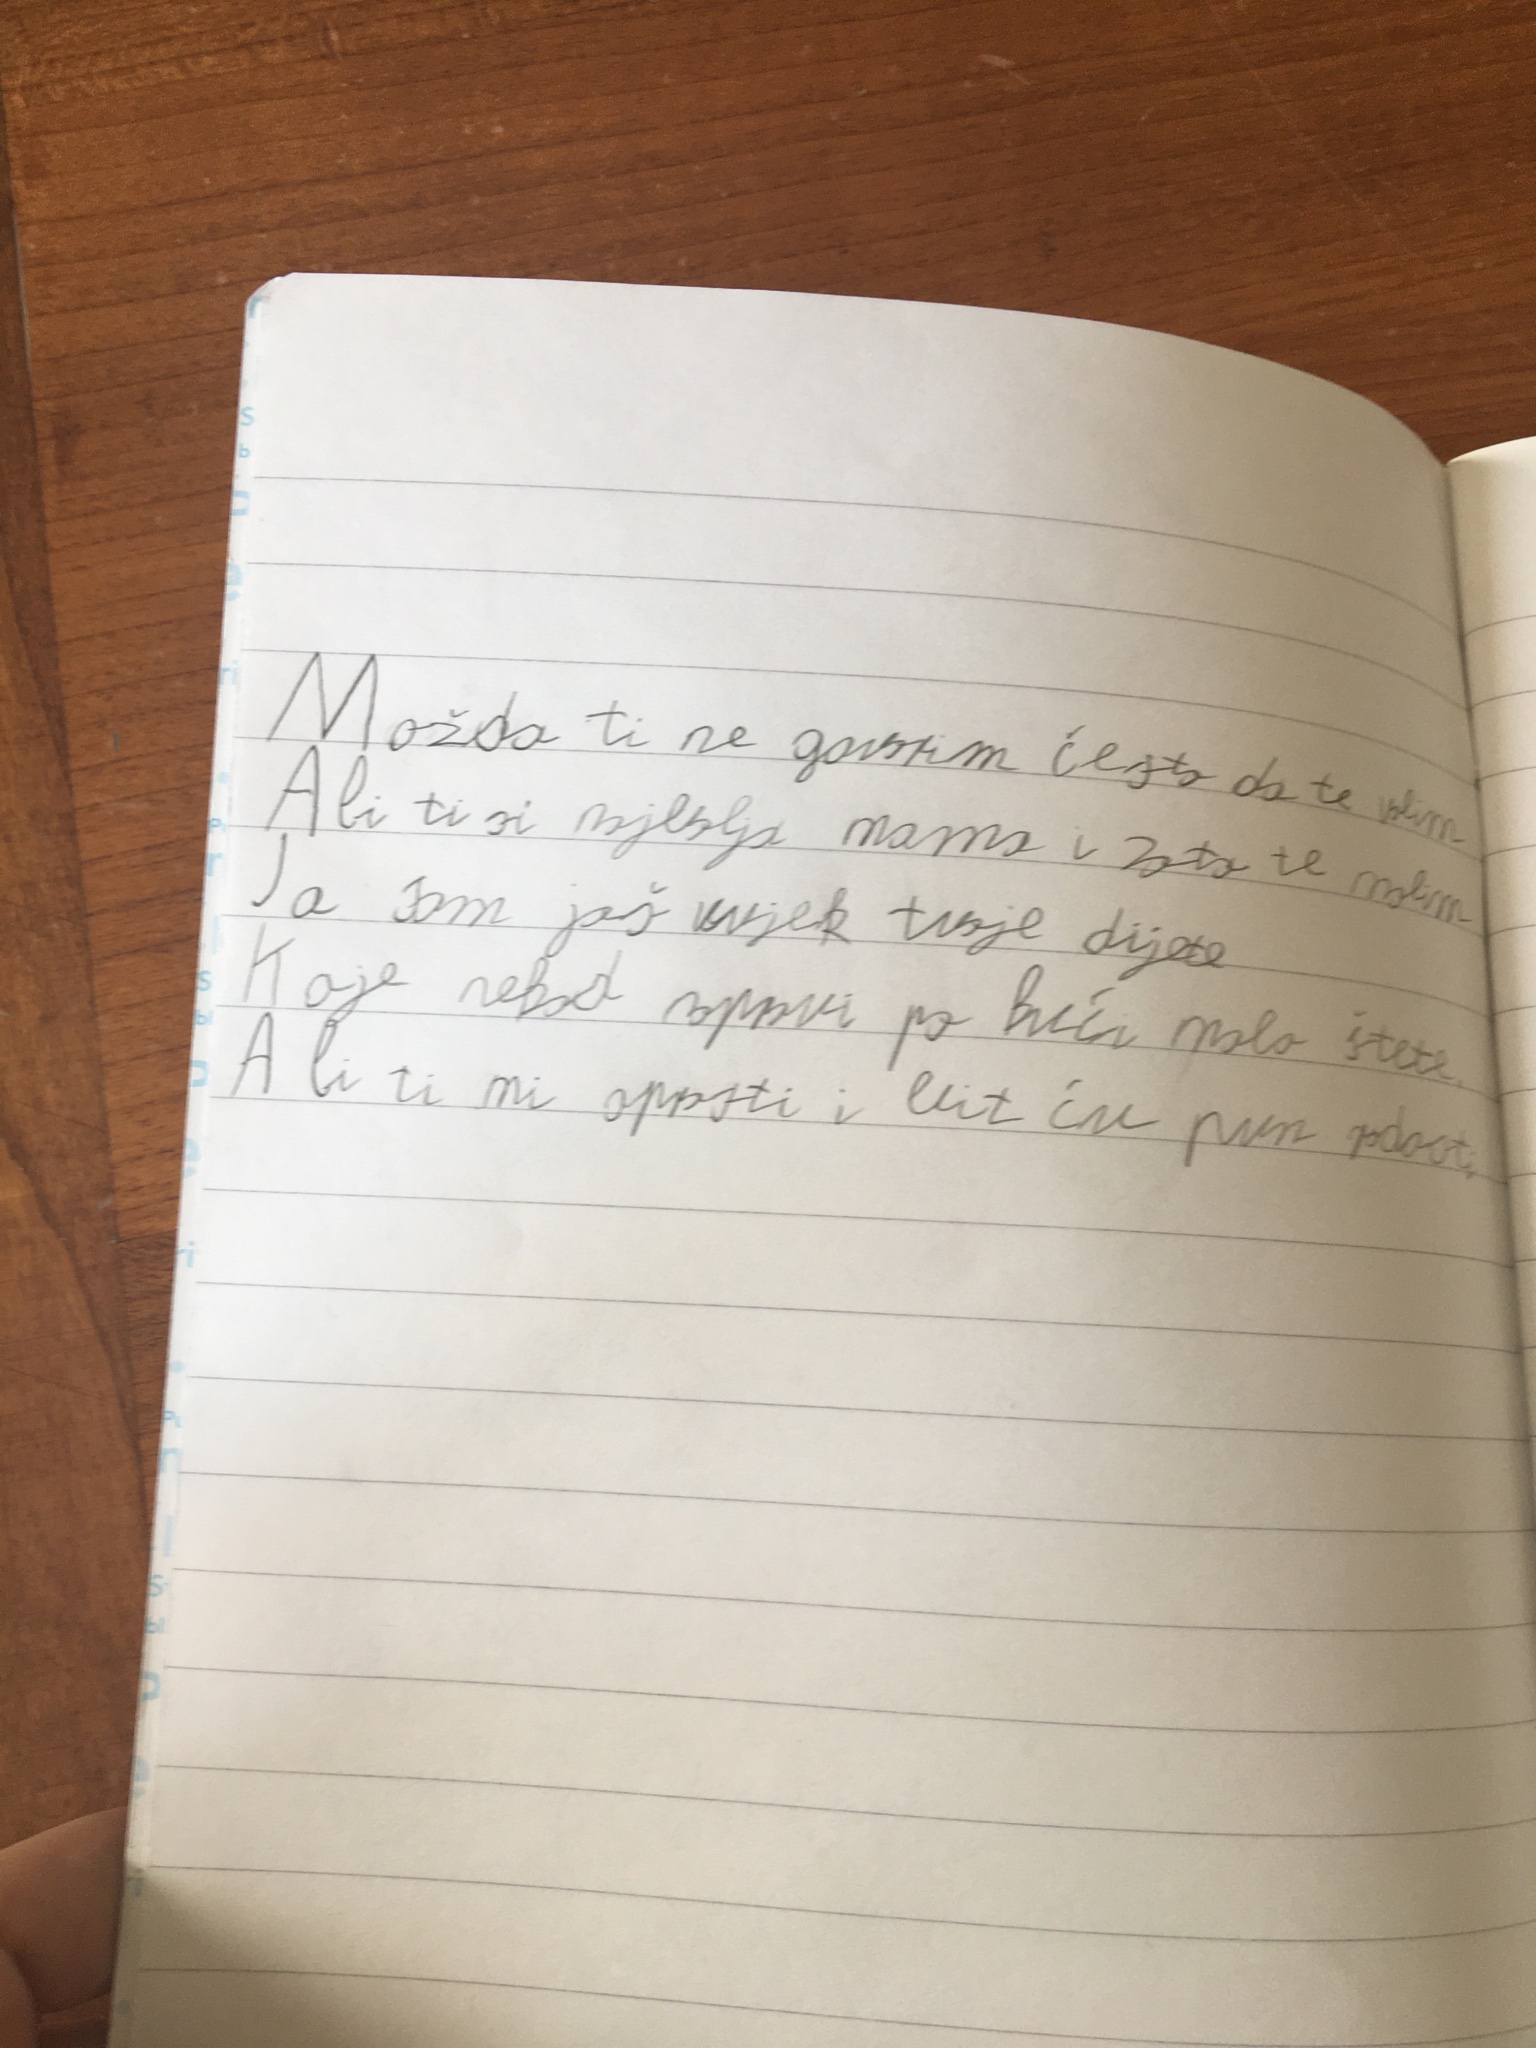 Možda ti ne govorim ćesto da te volim
Ali ti si najbolja mama i zato te molim
Ja sam još uvjek tvoje dijete
Koje nekad napravi po kući malo štete.
Ali ti mi oprosti i bit ću pun radosti,